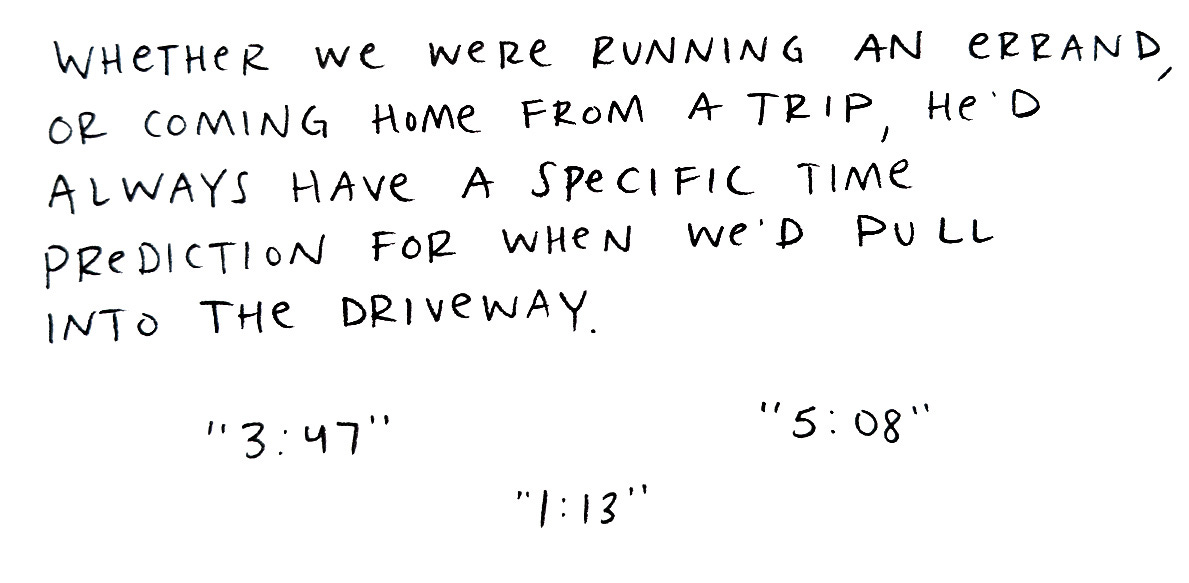 WHeTHeR we weRe RUNNING AN eRRAND,
OR COMING HoMe FROM A TRIP, He'D
ALWAYS HAVe A SPeCIFIC TIMe
PReDICTION FOR WHeN We'D PULL
INTO THe DRIVeWAY.
"3:47"
"5:08"
"1:13"